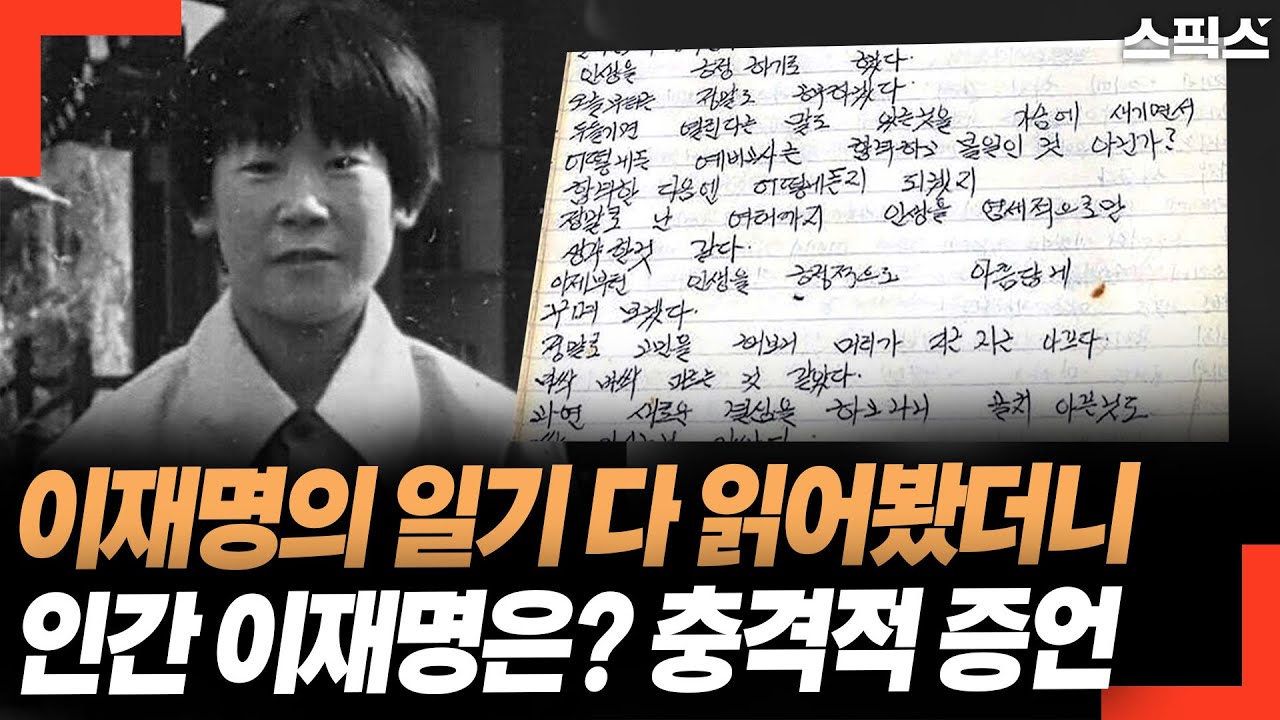 스픽스
인생을 긍정 하기로 했다.
오늘부터는 정말로 공부하겠다.
두들기면 열린다는 말도 있는것을 가슴에 새기면서
어떻게든 예비고사는 합격하고 볼일인 것 아닌가?
합격한 다음엔 어떻게든지 되겠지
정말로 난 여태까지 인생을 염세적으로만
생각한것 같다.
이제부턴 인생을 긍정적으로 아름답게
꾸며 보겠다.
정말로 고민을 해보니 머리가 지근 지근 아프다
버싹 버싹 마르는 것 같았다.
과연 새로운 결심을 하고나니 골치 아픈것도
이재명의 일기 다 읽어봤더니
인간 이재명은? 충격적 증언